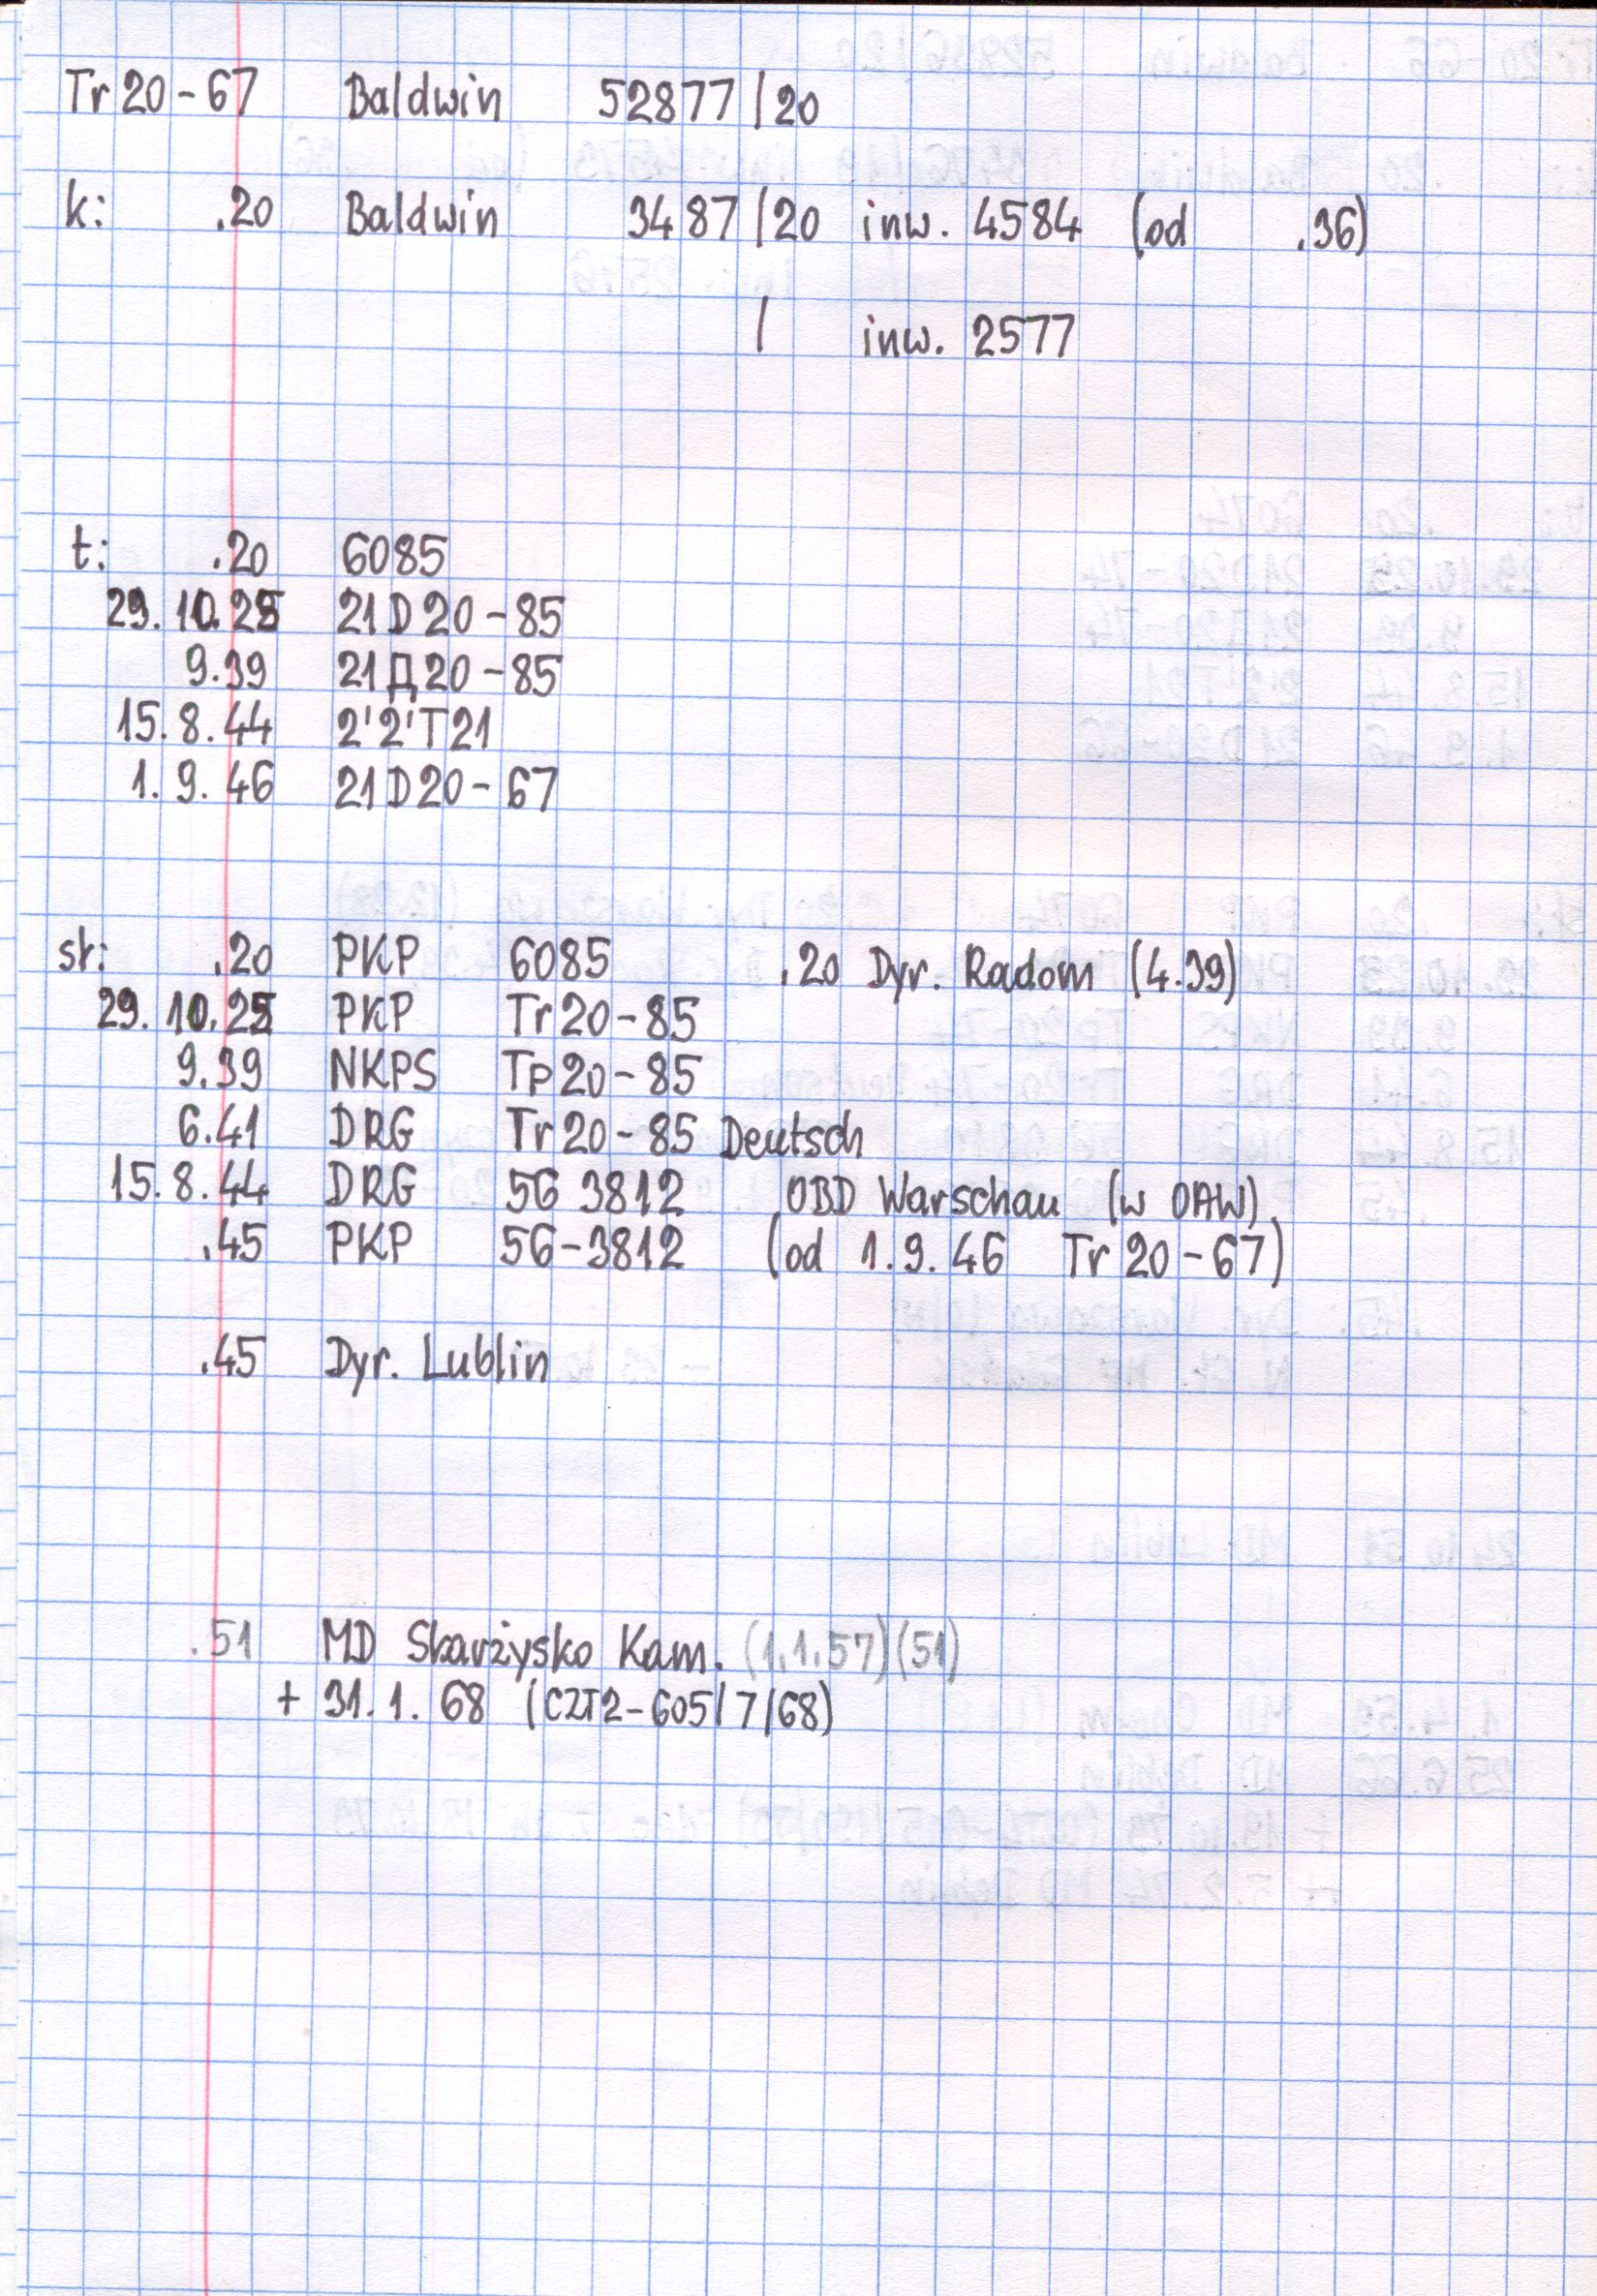 Tr 20-67 Baldwin 52877/20
k: .20 Baldwin 3487/20 inw. 4584 (od .36)
/ inw. 2577
t: .20 6085
29.10.25 21D20-85
9.39 21Д20-85
15.8.44 2'2'T21
1.9.46 21D20-67
st: .20 PKP 6085 .20 Dyr. Radom (4.39)
29.10.25 PKP Tr20-85
9.39 NKPS Tp20-85
6.41 DRG Tr20-85 Deutsch
15.8.44 DRG 56 3812 OBD Warschau (w OAW)
.45 PKP 56-3812 (od 1.9.46 Tr 20-67)
.45 Dyr. Lublin
.51 MD Skarżysko Kam. (1.1.57)(51)
+ 31.1.68 (CZT2-605/7/68)